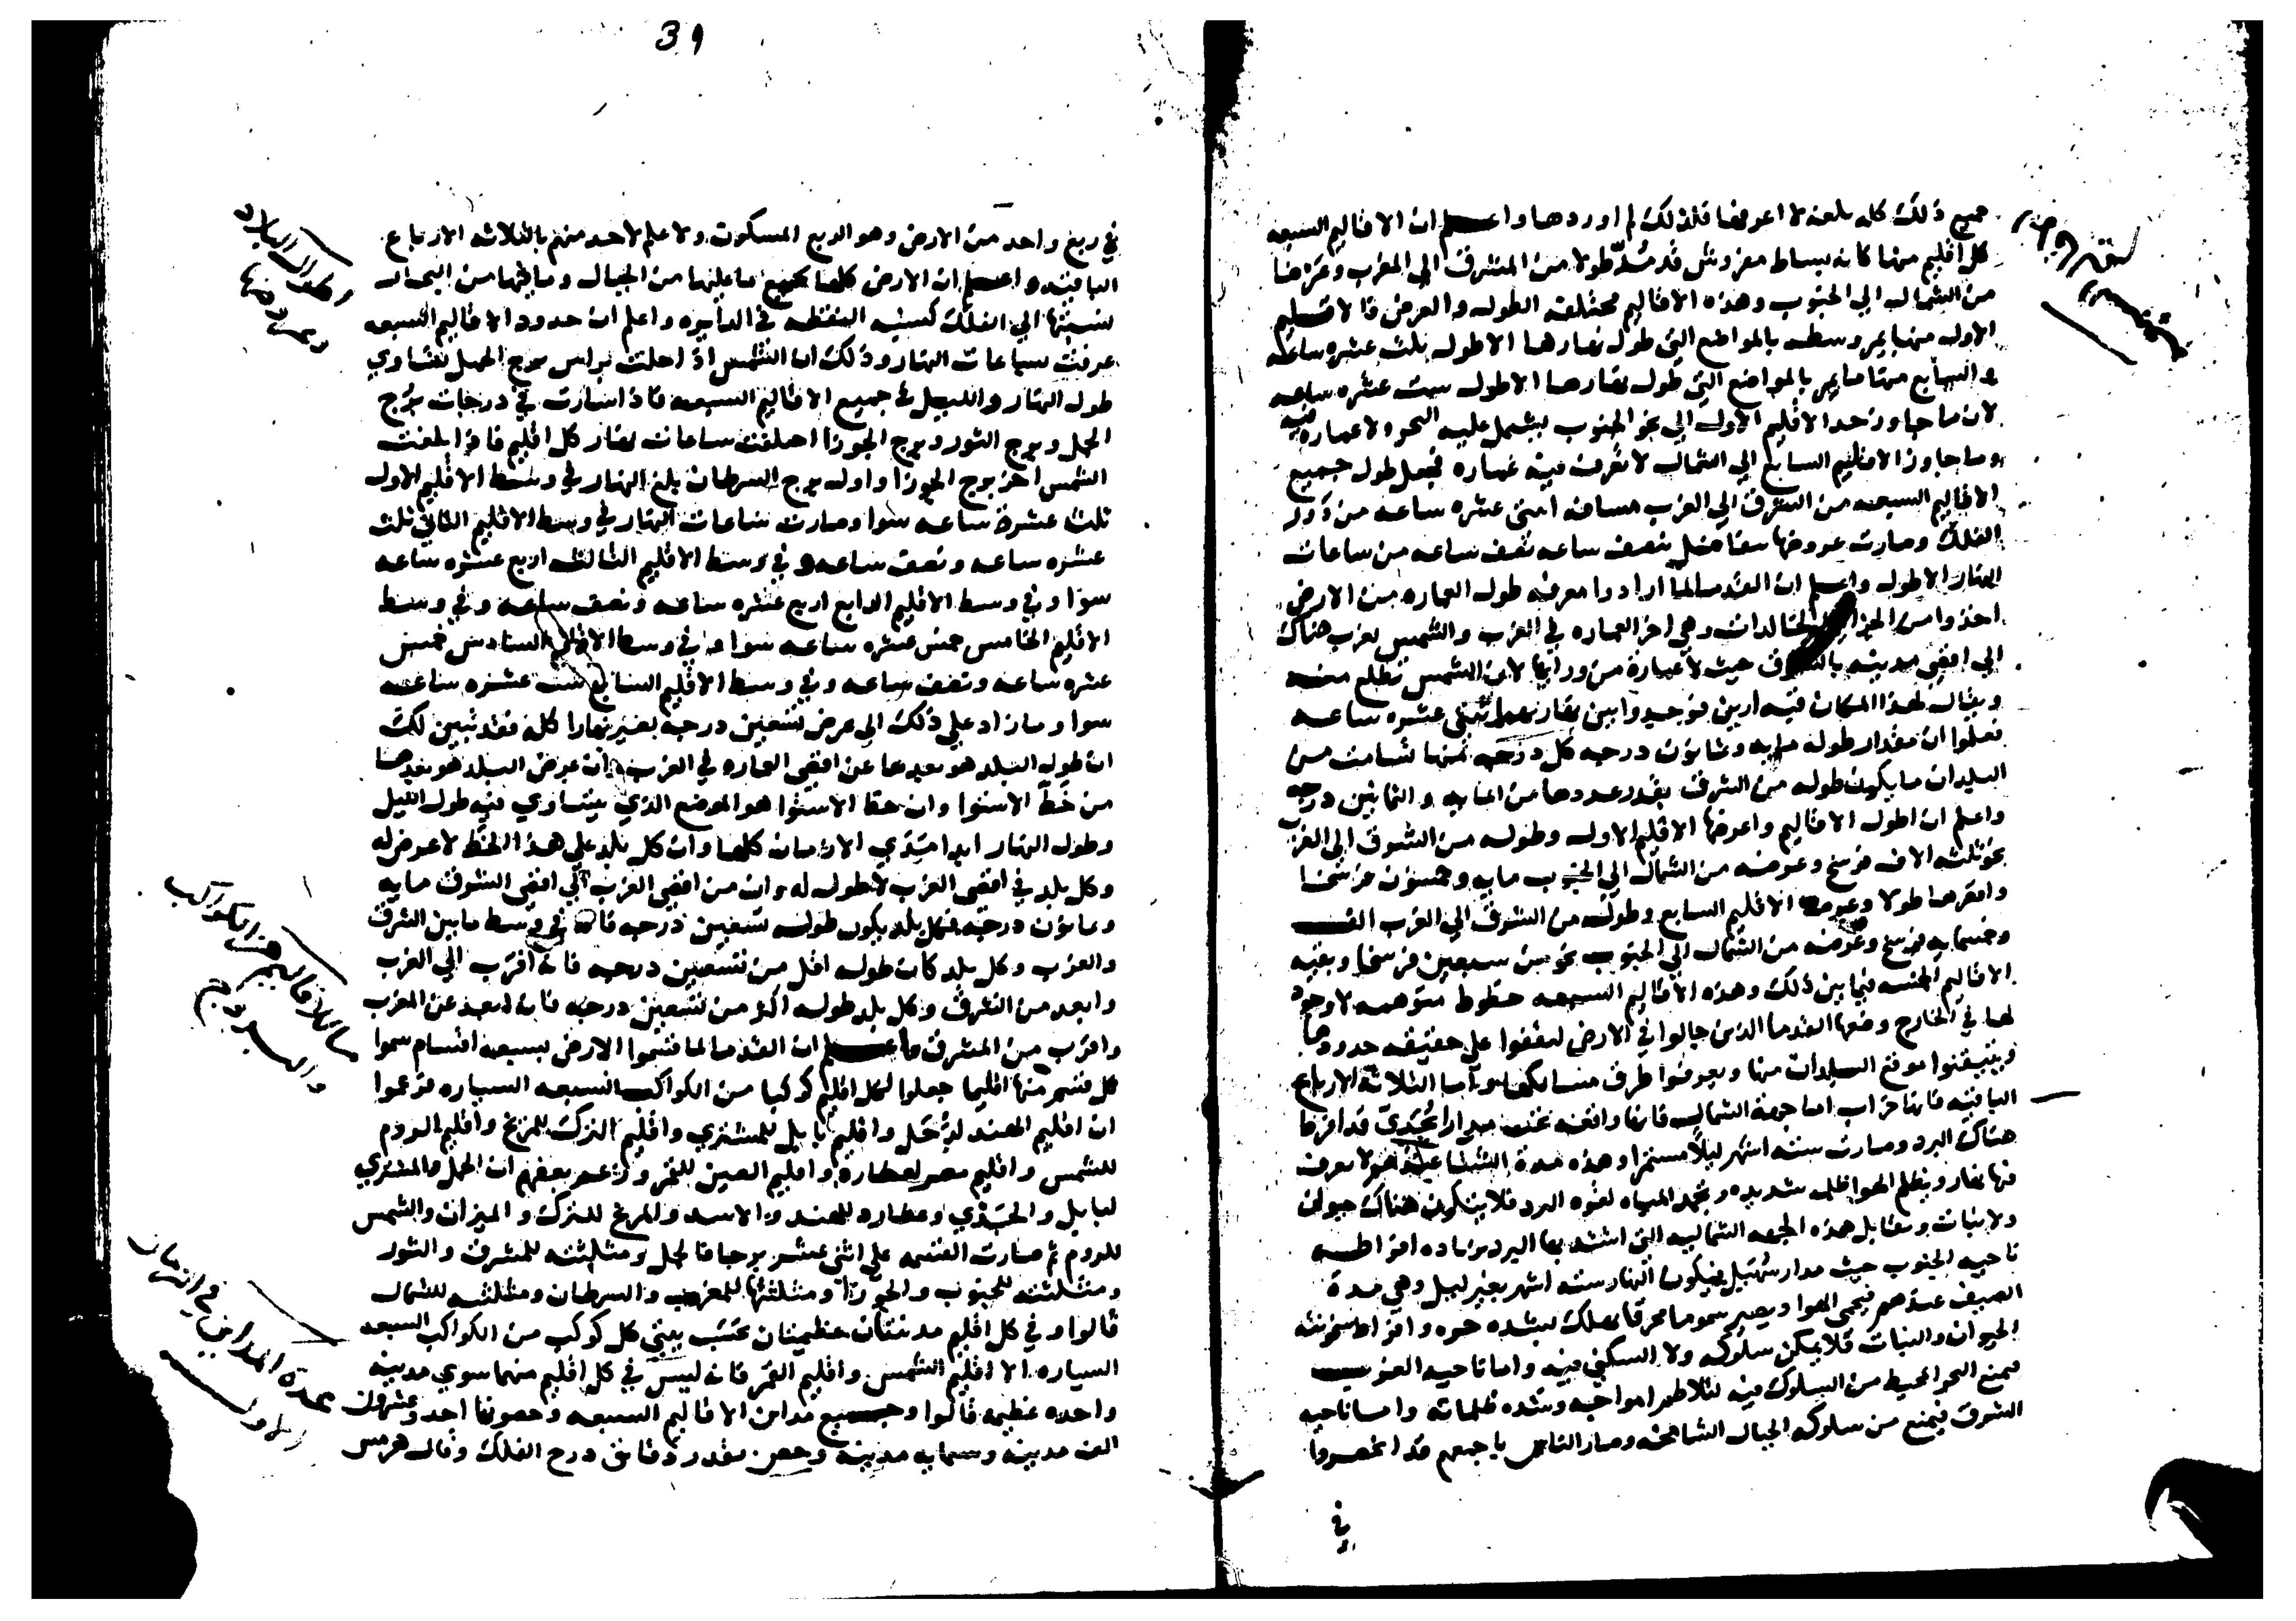 جميع ذلك كله بلغة لا اعرفها فلذلك لم اوردها واعلم ان الاقاليم السبعه
كل اقليم منها كانه بساط مفروش قد مُدّ طولا من المشرق الي المغرب وعرضا
من الشمال الي الجنوب وهذه الاقاليم مختلفة الطول والعرض فالاقليم
الاول منها يمر وسطه بالمواضع التي طول نهارها الاطول ثلث عشره ساعه
والسابع منها ما يمر بالمواضع التي طول نهارها الاطول ست عشره ساعه
لان ما جاوز حد الاقليم الاول الي نحو الجنوب يشتمل عليه البحر ولا عماره فيه
وما جاوز الاقليم السابع الي الشمال لا تعرف فيه عماره فجعل طول جميع
الاقاليم السبعه من الشرق الي الغرب مسافه اثنى عشره ساعه من دور
الفلك وصارت عروضها تتفاضل بنصف ساعه نصف ساعه من ساعات
النهار الاطول واعلم ان القدما لما ارادوا معرفة طول العماره من الارض
اخذوا من الجزاير الخالدات وهي اخر العماره في الغرب والشمس تغرب هناك
الي اقصي مدينه بالشرق حيث لا عمارة من ورايها لان الشمس تطلع منه
ويقال لهذا المكان قبة ارين فوجدوا بين نهاريهما اثنتى عشره ساعه
فعلموا ان مقدار طوله مايه وثمانون درجه كل درجه منها تسامت من
البلدان ما يكون طوله من الشرق بقدر عددها من المايه والثمانين درجه
واعلم ان اطول الاقاليم واعرضها الاقليم الاول وطوله من الشرق الي الغرب
نحو ثلثه الاف فرسخ وعرضه من الشمال الي الجنوب مايه وخمسون فرسخا
واقصرها طولا وعرضا الاقليم السابع وطوله من الشرق الي الغرب الف
وخمسمايه فرسخ وعرضه من الشمال الي الجنوب نحو من سبعين فرسخا وبقيه
الاقاليم الخمسه فيما بين ذلك وهذه الاقاليم السبعه خطوط متوهمه لا وجود
لها في الخارج وضعها القدما الذين جالوا في الارض ليقفوا علي حقيقه حدودها
ويتيقنوا موقع البلدان منها ويعرفوا طرق مسالكها واما الثلاثة الارباع
الباقيه فانها خراب اما جهة الشمال فانها واقعه تحت مدار الجَدي قد افرط
هناك البرد وصارت سته اشهر ليلا مستمرا وهذه مدة الشتا عندهم لا يعرف
فيها نهار ويظلم الهوا ظلمه شديده وتجمد المياه لقوه البرد فلا يتكون هناك حيوان
ولا نبات ويقابل هذه الجهه الشماليه التي اشتد بها البرد بزياده افراطه
ناحيه الجنوب حيث مدار سُهَيل فيكون النهار سته اشهر بغير ليل وهي مدة
الصيف عندهم فيحمي الهوا ويصير سموما محرقا يهلك بشده حره وافراط سخونته
الحيوان والنبات فلا يمكن سلوكه ولا السكني فيه واما ناحيه الغرب
فيمنع البحر المحيط من السلوك فيه لتلاطم امواجه وشده ظلماته واما ناحيه
الشرق فيمنع من سلوكه الجبال الشامخه وصار الناس باجمعهم قد انحصروا
في
39
في ربع واحد من الارض وهو الربع المسكون ولا علم لاحد منهم بالثلاثه الارباع
الباقيه واعلم ان الارض كلها بجميع ما عليها من الجبال وما فيها من البحار
نسبتها الي الفلك كنسبه النقطه في الدايره واعلم ان حدود الاقاليم السبعه
عرفت بساعات النهار وذلك ان الشمس اذا حلت براس برج الحمل تساوي
طول النهار والليل في جميع الاقاليم السبعه فاذا سارت في درجات برج
الحمل وبرج الثور وبرج الجوزا اختلفت ساعات نهار كل اقليم فاذا بلغت
الشمس اخر برج الجوزا واول برج السرطان بلغ النهار في وسط الاقليم الاول
ثلث عشرة ساعه سوا وصارت ساعات النهار في وسط الاقليم الثاني ثلث
عشره ساعه ونصف ساعه وفي وسط الاقليم الثالث اربع عشره ساعه
سوا وفي وسط الاقليم الرابع اربع عشره ساعه ونصف ساعه وفي وسط
الاقليم الخامس خمس عشره ساعه سوا وفي وسط الاقليم السادس خمس
عشره ساعه ونصف ساعه وفي وسط الاقليم السابع ست عشره ساعه
سوا وما زاد علي ذلك الي عرض تسعين درجه يصير نهارا كله فقد تبين لك
ان طول البلد هو بعدها عن اقصي العماره في الغرب وان عرض البلد هو بعدها
من خطّ الاستوا وان خط الاستوا هو الموضع الذي يتساوي فيه طول الليل
وطول النهار ابدا مَدي الازمان كلها وان كل بلد علي هذا الخط لا عرض له
وكل بلد في اقصي الغرب لا طول له وان من اقصي الغرب الي اقصي الشرق مايه
وثمانون درجه فكل بلد يكون طوله تسعين درجه فانه في وسط ما بين الشرق
والغرب وكل بلد كان طوله اقل من تسعين درجه فانه اقرب الي الغرب
وابعد من الشرق وكل بلد طوله اكثر من تسعين درجه فانه ابعد عن المغرب
واقرب من المشرق واعلم ان القدما لما قسموا الارض بسبعه اقسام سموا
كل قسم منها اقليما جعلوا لكل اقليم كوكبا من الكواكب السبعه السياره فزعموا
ان اقليم الهند لزُحَل واقليم بابل للمشتري واقليم الترك للمريخ واقليم الروم
للشمس واقليم مصر لعطارد واقليم الصين للقمر وزعم بعضهم ان الحمل والمشتري
لبابل والجَدي وعطارد للهند والاسد والمريخ للترك والميزان والشمس
للروم ثم صارت القسمه علي اثني عشر برجا فالحمل ومثلثته للمشرق والثور
ومثلثته للجنوب والجوزا ومثلثتها للمغرب والسرطان ومثلثته للشمال
قالوا وفي كل اقليم مدينتان عظيمتان بحَسَب بيتي كل كوكب من الكواكب السبعه
السياره الا اقليم الشمس واقليم القمر فانه ليس في كل اقليم منهما سوي مدينه
واحده عظيمه قالوا وجميع مداين الاقاليم السبعه وحصونها احد وعشرون
الف مدينه وستمايه مدينه وحصن بقدر دقايق درج الفلك وقال هرمس